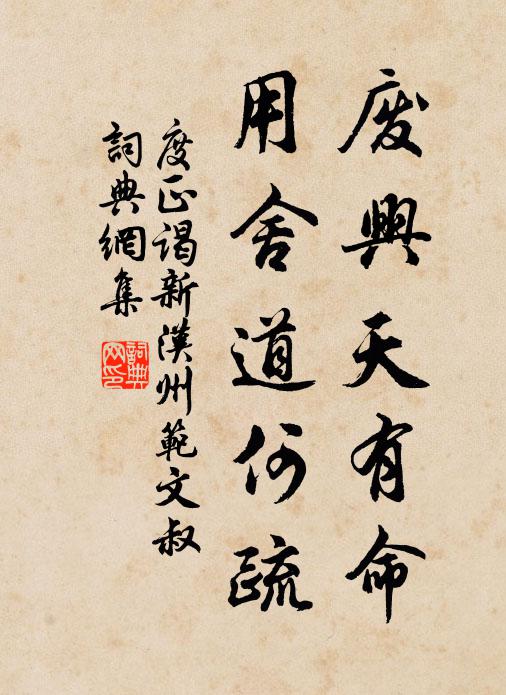 废興天有命
用舍道何疏
度正謁新漢州範文叔
詞典網集
詞典
网印